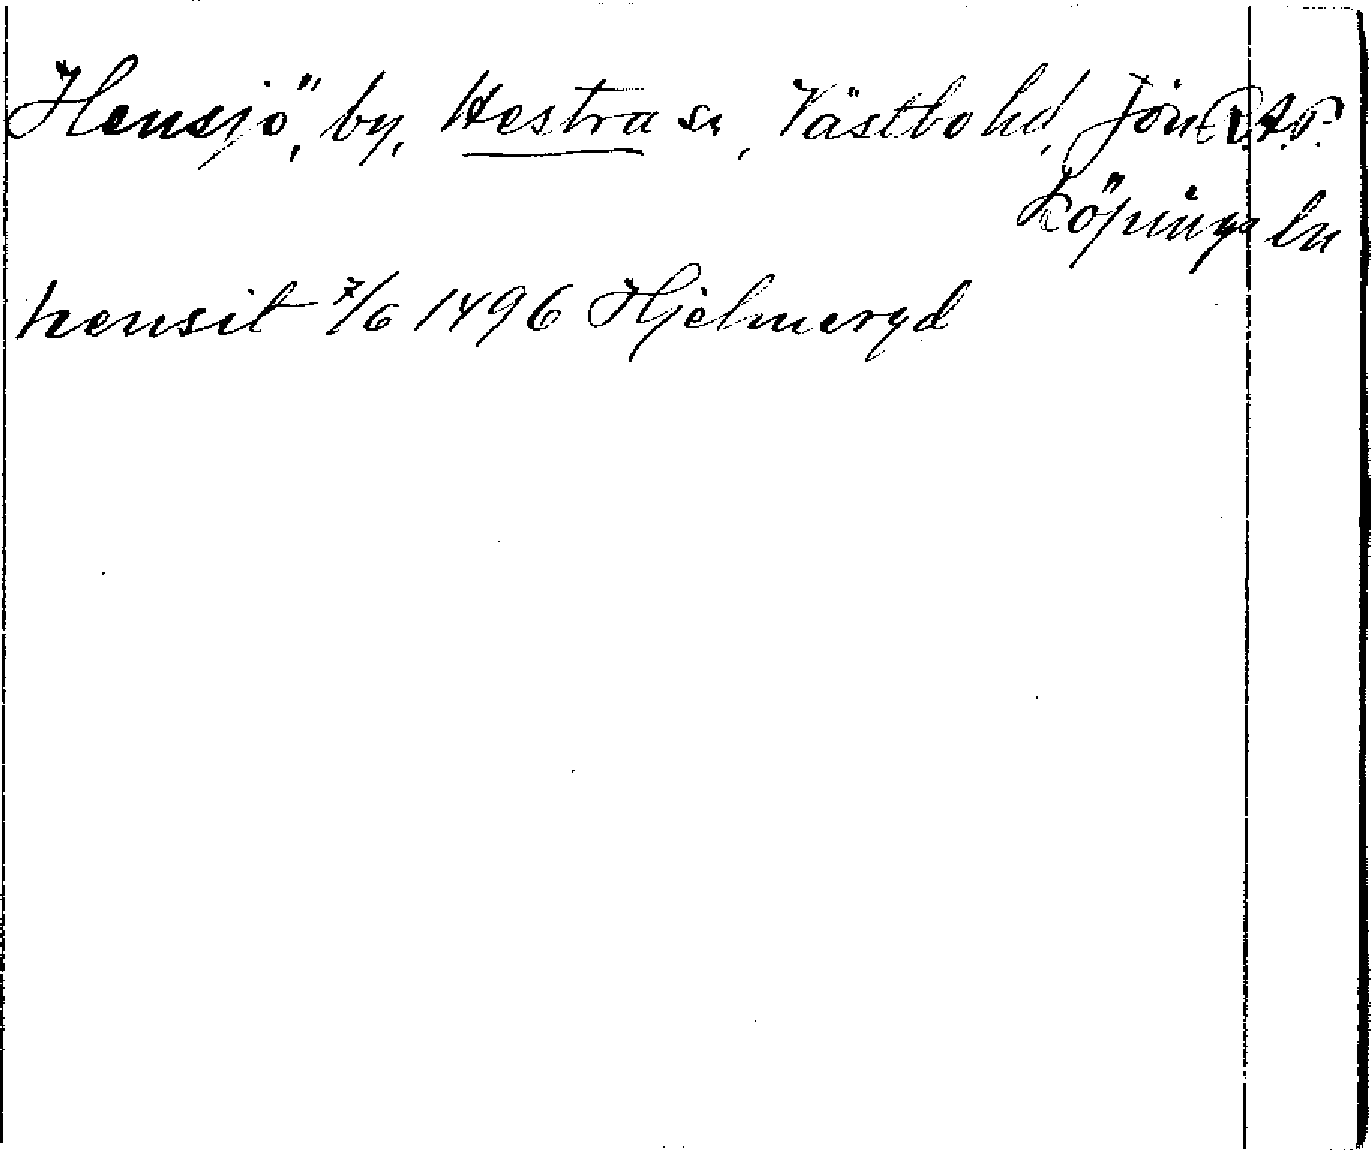 Hensjö, by, Hestra sn, Västbo hd, Jön R.A.P.
köpings ln
hensit 7/6 1496 Hjelmeryd